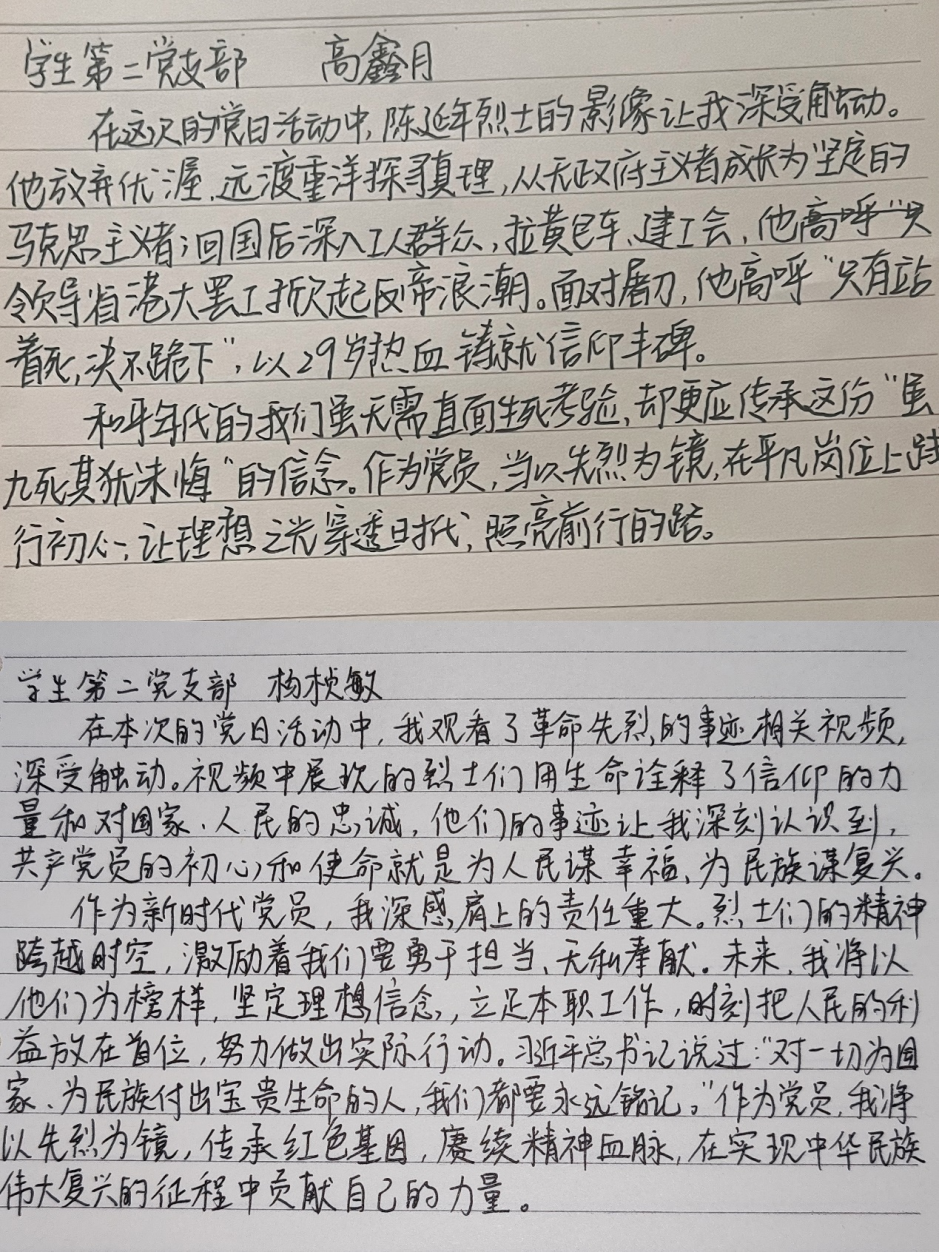 学生第二党支部 高鑫月
在这次的党日活动中,陈延年烈士的影像让我深受触动。
他放弃优渥,远渡重洋探寻真理,从无政府主义者成长为坚定的
马克思主义者;回国后深入工人群众,拉黄包车、建工会,他高呼“只
领导省港大罢工掀起反帝浪潮。面对屠刀,他高呼“只有站
着死,决不跪下”,以29岁热血铸就信仰丰碑。
和平年代的我们虽无需直面生死考验,却更应传承这份“虽
九死其犹未悔”的信念。作为党员,当以先烈为镜,在平凡岗位上践
行初心,让理想之光穿透时代,照亮前行的路。
学生第二党支部 杨桢敏
在本次的党日活动中,我观看了革命先烈的事迹相关视频,
深受触动。视频中展现的烈士们用生命诠释了信仰的力
量和对国家、人民的忠诚,他们的事迹让我深刻认识到,
共产党员的初心和使命就是为人民谋幸福、为民族谋复兴。
作为新时代党员,我深感肩上的责任重大。烈士们的精神
跨越时空,激励着我们要勇于担当、无私奉献。未来,我将以
他们为榜样,坚定理想信念,立足本职工作,时刻把人民的利
益放在首位,努力做出实际行动。习近平总书记说过:“对一切为国
家、为民族付出宝贵生命的人,我们都要永远铭记。”作为党员,我将
以先烈为镜,传承红色基因,赓续精神血脉,在实现中华民族
伟大复兴的征程中贡献自己的力量。